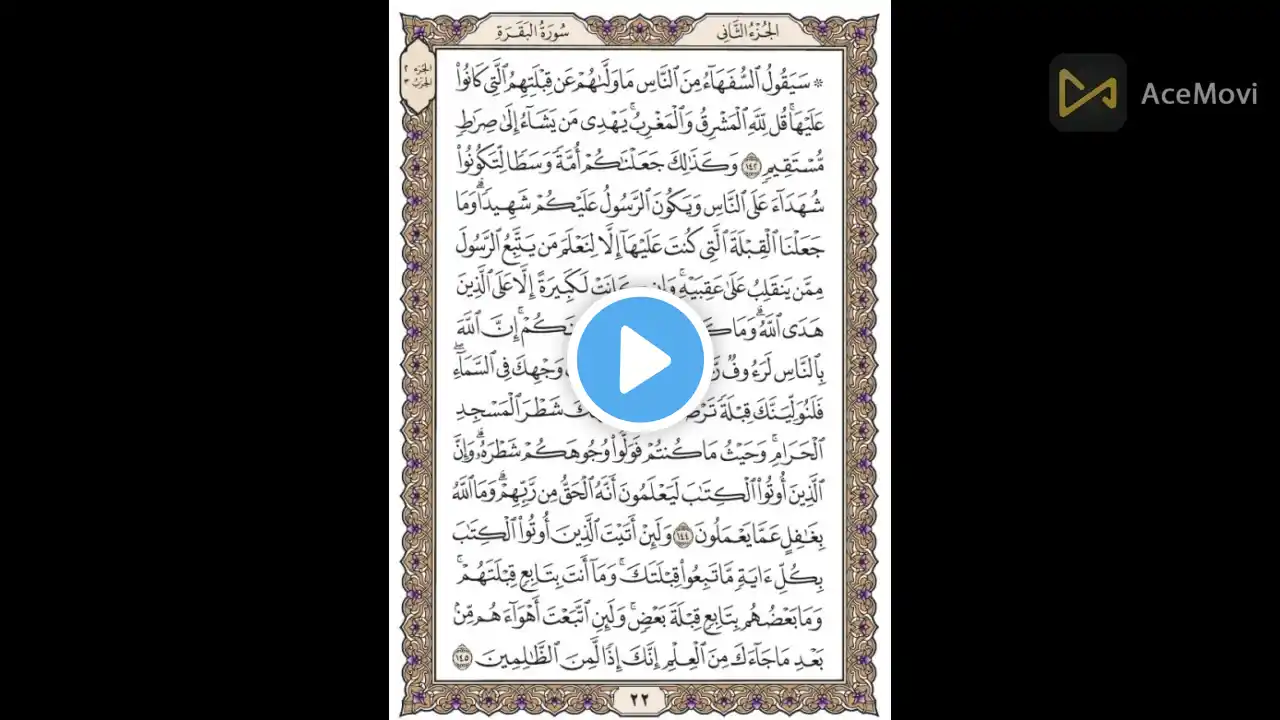 الجُزْءُ الثَّانِي
سُورَةُ البَقَرَةِ
الجزء ٢
الحزب ٣
AceMovi
۞ سَيَقُولُ ٱلسُّفَهَآءُ مِنَ ٱلنَّاسِ مَا وَلَّىٰهُمْ عَن قِبْلَتِهِمُ ٱلَّتِى كَانُوا۟
عَلَيْهَا ۚ قُل لِّلَّهِ ٱلْمَشْرِقُ وَٱلْمَغْرِبُ ۚ يَهْدِى مَن يَشَآءُ إِلَىٰ صِرَٰطٍ
مُّسْتَقِيمٍ ١٤٢ وَكَذَٰلِكَ جَعَلْنَٰكُمْ أُمَّةً وَسَطًا لِّتَكُونُوا۟
شُهَدَآءَ عَلَى ٱلنَّاسِ وَيَكُونَ ٱلرَّسُولُ عَلَيْكُمْ شَهِيدًا ۗ وَمَا
جَعَلْنَا ٱلْقِبْلَةَ ٱلَّتِى كُنتَ عَلَيْهَآ إِلَّا لِنَعْلَمَ مَن يَتَّبِعُ ٱلرَّسُولَ
مِمَّن يَنقَلِبُ عَلَىٰ عَقِبَيْهِ ۚ وَإِن كَانَتْ لَكَبِيرَةً إِلَّا عَلَى ٱلَّذِينَ
هَدَى ٱللَّهُ ۗ وَمَا إِنَّ ٱللَّهَ
بِٱلنَّاسِ لَرَءُوفٌ وَجْهِكَ فِى ٱلسَّمَآءِ ۖ
فَلَنُوَلِّيَنَّكَ قِبْلَةً شَطْرَ ٱلْمَسْجِدِ
ٱلْحَرَامِ ۚ وَحَيْثُ مَا كُنتُمْ فَوَلُّوا۟ وُجُوهَكُمْ شَطْرَهُۥ ۗ وَإِنَّ
ٱلَّذِينَ أُوتُوا۟ ٱلْكِتَٰبَ لَيَعْلَمُونَ أَنَّهُ ٱلْحَقُّ مِن رَّبِّهِمْ ۗ وَمَا ٱللَّهُ
بِغَٰفِلٍ عَمَّا يَعْمَلُونَ ١٤٤ وَلَئِنْ أَتَيْتَ ٱلَّذِينَ أُوتُوا۟ ٱلْكِتَٰبَ
بِكُلِّ ءَايَةٍ مَّا تَبِعُوا۟ قِبْلَتَكَ ۚ وَمَآ أَنتَ بِتَابِعٍ قِبْلَتَهُمْ ۚ
وَمَا بَعْضُهُم بِتَابِعٍ قِبْلَةَ بَعْضٍ ۚ وَلَئِنِ ٱتَّبَعْتَ أَهْوَآءَهُم مِّنۢ
بَعْدِ مَا جَآءَكَ مِنَ ٱلْعِلْمِ إِنَّكَ إِذًا لَّمِنَ ٱلظَّٰلِمِينَ ١٤٥
٢٢